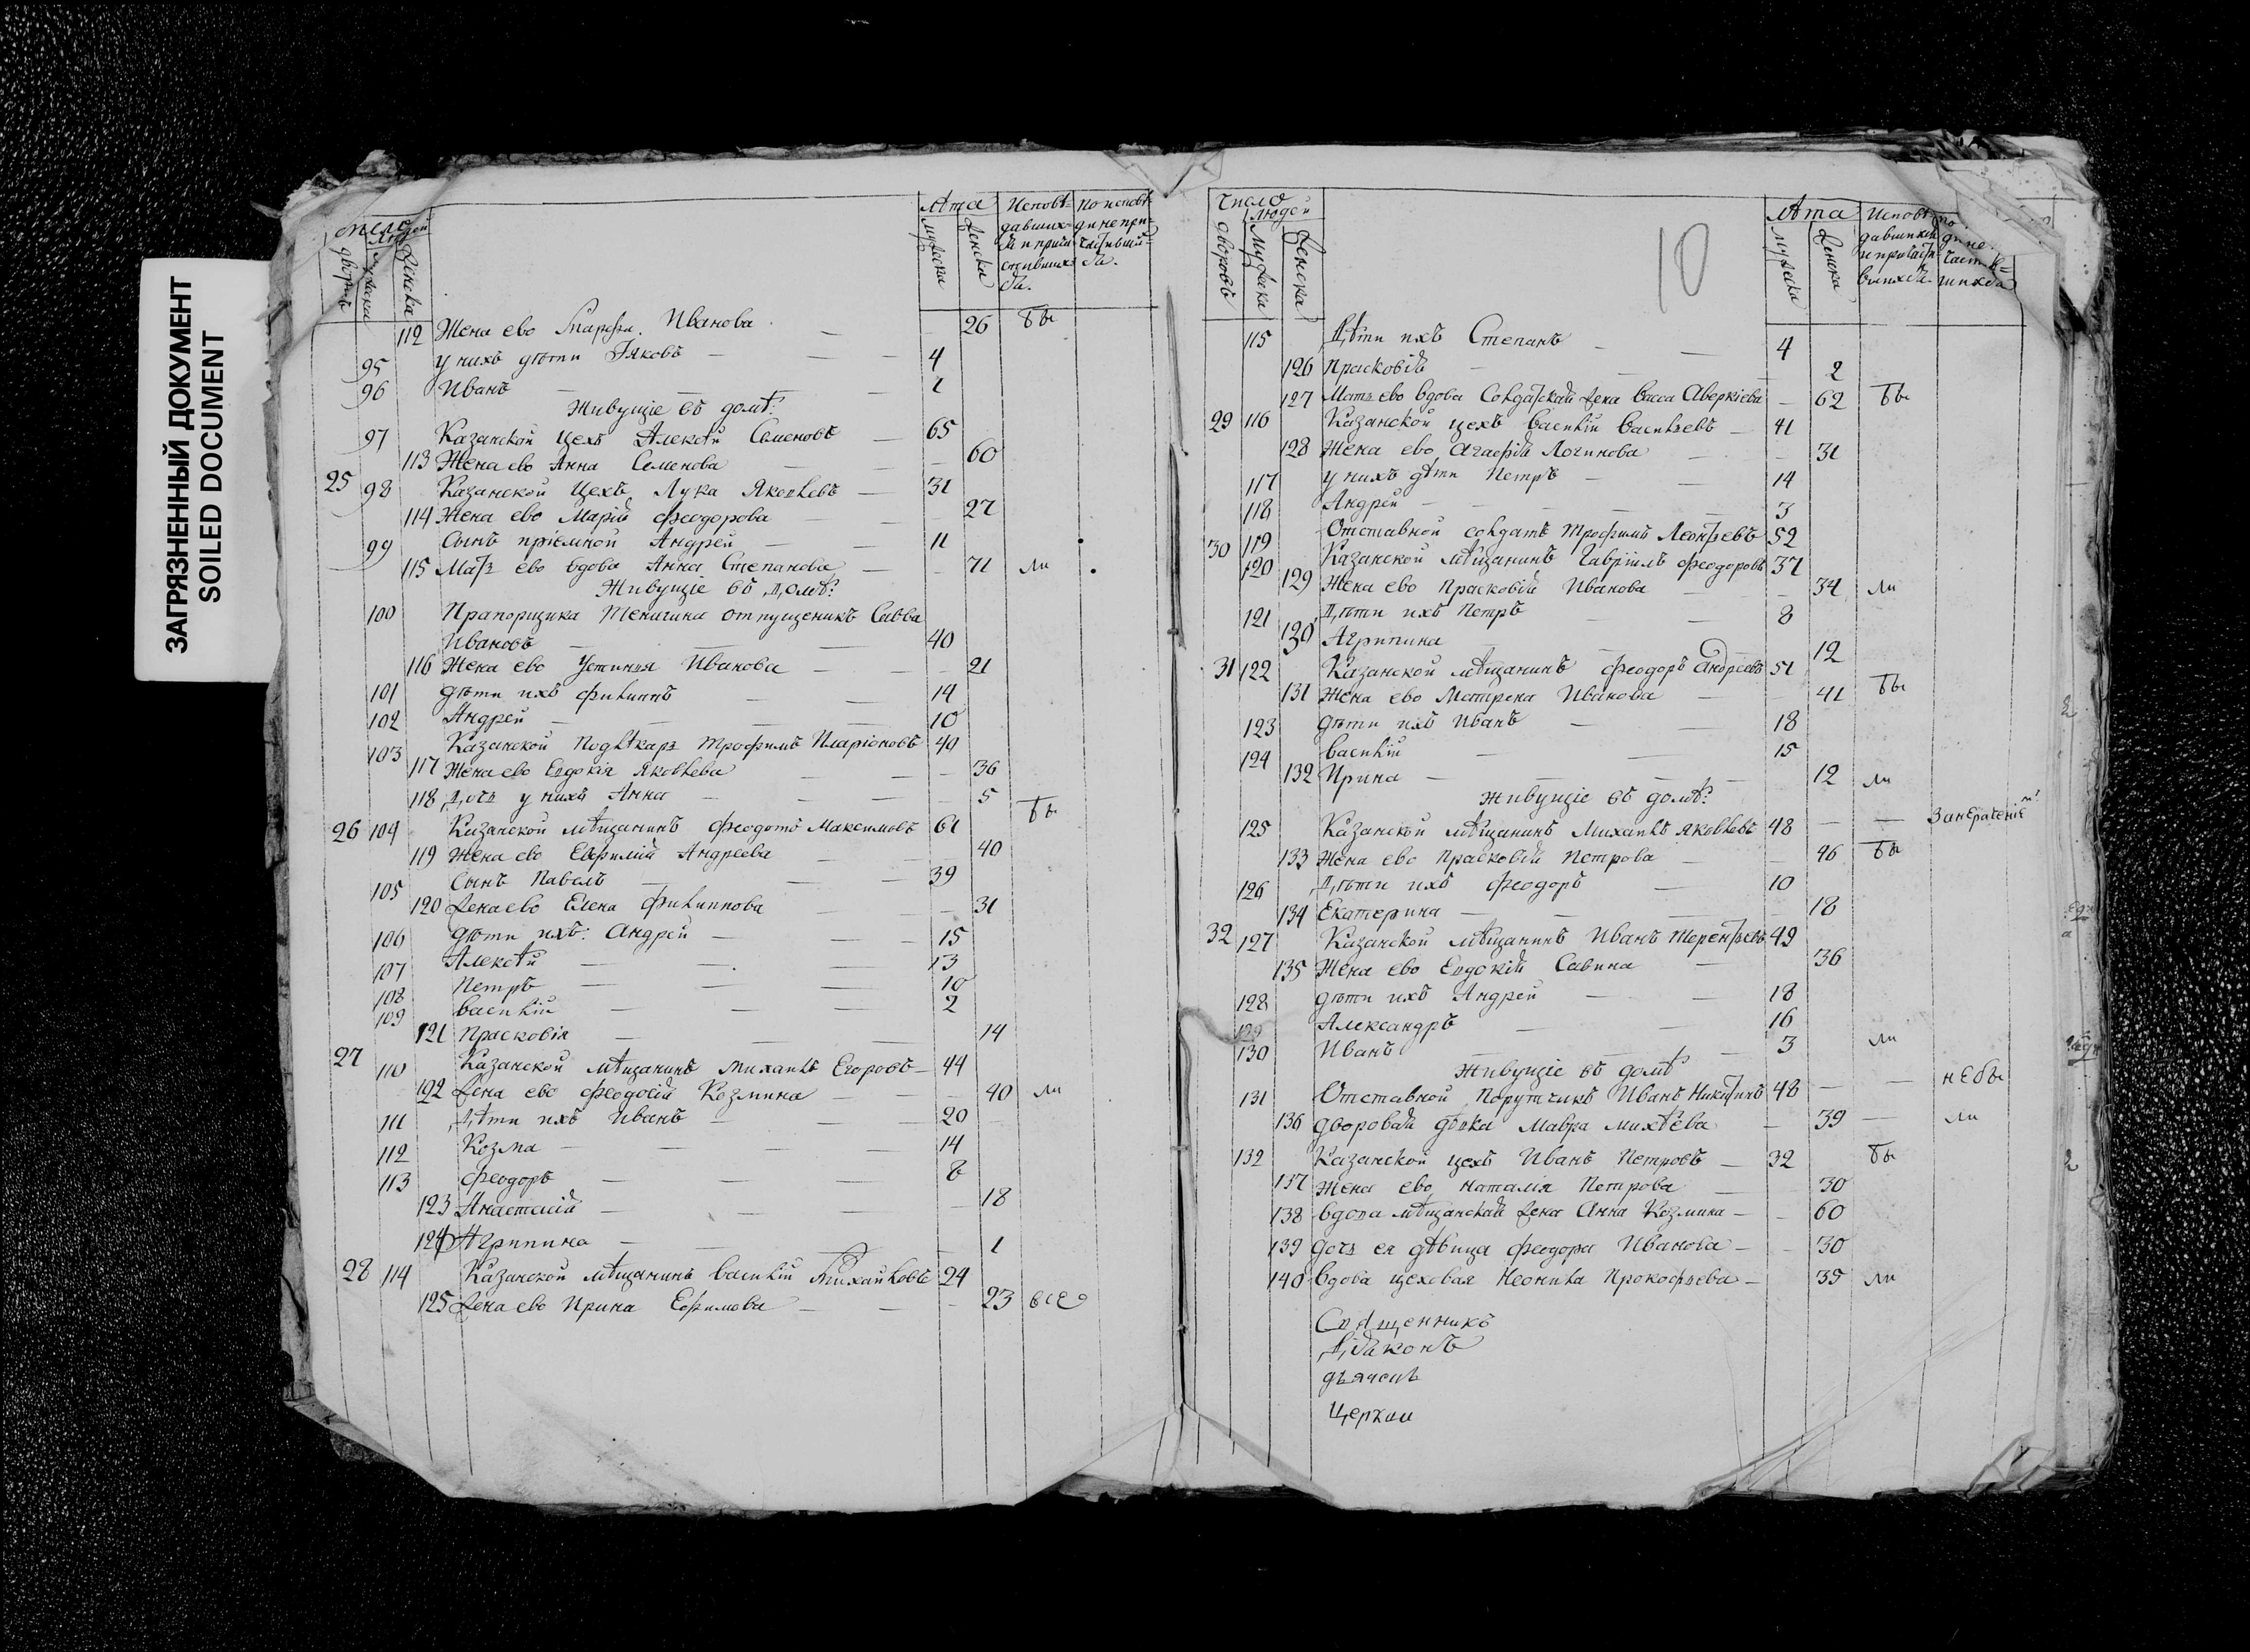 ЗАГРЯЗНЕННЫЙ ДОКУМЕНТ
SOILED DOCUMENT
число
людей
дворовъ
мужеска
женска
лѣта
мужеска
женска
Исповѣ-
давших-
ся и прича-
стивших-
ся.
По исповѣ-
ди непри-
частивших-
ся.
112 Жена ево Марфа Иванова 26 бы
95 у нихъ дѣти Іяковъ 4
96 Иванъ 1
Живущіе въ домѣ:
97 Казанской цехъ Алексѣй Семеновъ 65
113 Жена ево Анна Семенова 60
25 98 Казанской Цехъ Лука Яковлевъ 31
114 Жена ево Марія Феодорова 27
99 Сынъ пріемной Андрей 11
115 Мать ево вдова Анна Степанова 71 ли
Живущіе въ домѣ:
100 Прапорщика Теничина отпущеникъ Савва
Ивановъ 40
116 Жена ево Устинья Иванова 21
101 дѣти ихъ Филиппъ 14
102 Андрей 10
103 Казанской Подлѣкарь Трофимъ Иларіоновъ 40
117 Жена ево Евдокія Яковлева 36
118 Дочь у нихъ Анна 5
бы
26 104 Казанской мѣщанинъ Феодотъ Максимовъ 61
119 Жена ево Евфимія Андреева 40
105 Сынъ Павелъ 39
120 Жена ево Елена Филиппова 31
106 дѣти ихъ: Андрей 15
107 Алексѣй 13
108 Петръ 10
109 Василій 2
121 Прасковія 14
27 110 Казанской мѣщанинъ Михаилъ Егоровъ 44
122 Жена ево Феодосія Козмина 40 ли
111 Дѣти ихъ Иванъ 20
112 Козма 14
113 Феодоръ 8
123 Анастасія 18
124 Агрипина 1
28 114 Казанской мѣщанинъ Василій Михайловъ 24
125 Жена ево Ирина Ефимова 23 все
10
число
людей
дворовъ
мужеска
женска
лѣта
мужеска
женска
Исповѣ-
давшихся
и причасти-
вшихся.
115 Дѣти ихъ Степанъ 4
126 Прасковія 2
127 Мать ево вдова Солдатская жена Васса Аверкіева 62 бы
29 116 Казанской цехъ Василій Васильевъ 41
128 Жена ево Агафія Логинова 31
117 у нихъ дѣти Петръ 14
118 Андрей 3
119 Отставной солдатъ Трофимъ Леонтьевъ 52
30 120 Казанской мѣщанинъ Гавріилъ Феодоровъ 37
129 Жена ево Прасковія Иванова 34 ли
121 Дѣти ихъ Петръ 8
130 Агрипина 12
31 122 Казанской мѣщанинъ Феодоръ Андреевъ 51
131 Жена ево Матрена Иванова 41 бы
123 дѣти ихъ Иванъ 18
124 Василій 15
132 Ирина 12 ли
Живущіе въ домѣ:
125 Казанской мѣщанинъ Михаилъ Яковлевъ 48
133 Жена ево Прасковія Петрова 46 бы
126 Дѣти ихъ Феодоръ 10
134 Екатерина 18
32 127 Казанской мѣщанинъ Иванъ Терентьевъ 49
135 Жена ево Евдокія Савина 36
128 дѣти ихъ Андрей 18
129 Александръ 16
130 Иванъ 3 ли
Живущіе въ домѣ
131 Отставной Порутчикъ Иванъ Никитинъ 48 небы
136 дворовая дѣвка Мавра Михѣева 39 ли
132 Казанской цехъ Иванъ Петровъ 32 бы
137 Жена ево Наталія Петрова 30
138 вдова мѣщанская жена Анна Козмина 60
139 дочь ея дѣвица Феодора Иванова 30
140 вдова цеховая Неонила Прокофьева 35 ли
Священникъ
Діаконъ
дьячекъ
Церкви